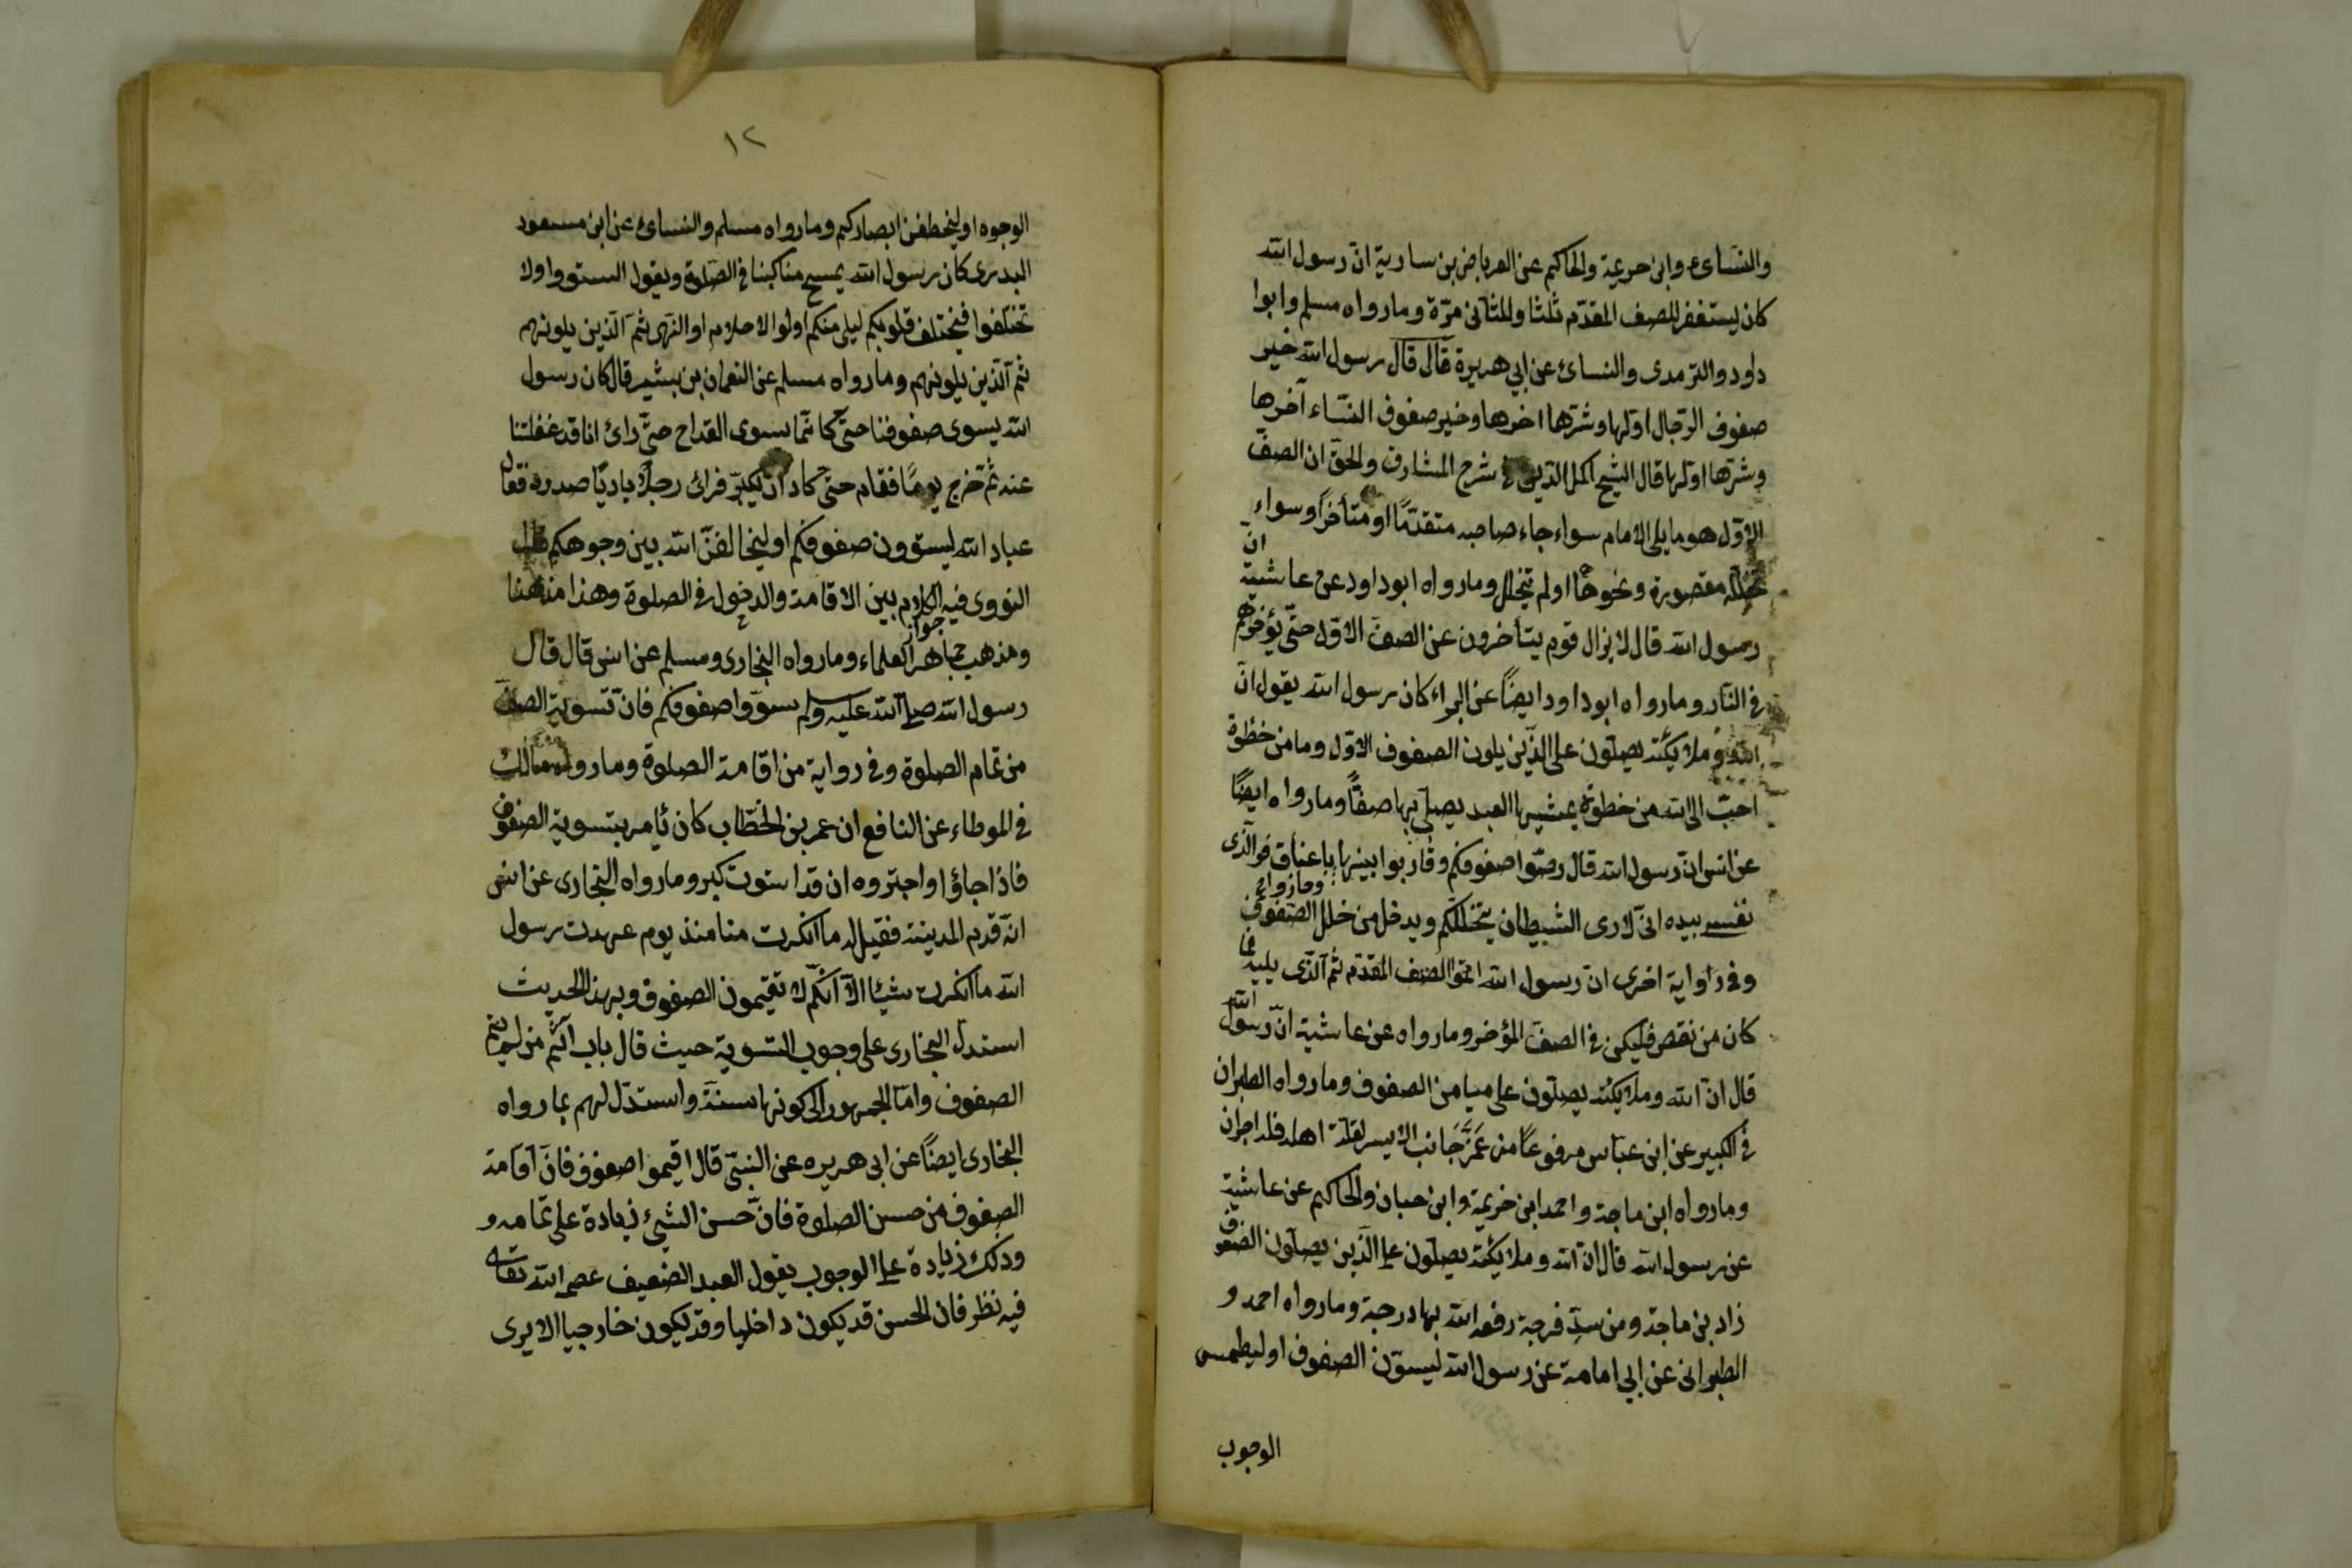 والنسائ وابن حريمة والحاكم عن العرباض بن سارية ان رسول الله
كان يستغفر للصف المقدم ثلثا وللثانى مرّة وما رواه مسلم وابوا
داود والترمدى والنسائ عن ابي هريرة قال قال رسول الله خير
صفوف الرجال اولها وشرها اخرها وخير صفوف النساء آخرها
وشرها اولها قال الشيخ اكمل الدين فى شرح المشارق والحق ان الصف
الاوّل هو ما يلى الامام سواء جاء صاحبه متقدمًا او متأخراً وسواء
تخلله مقصورة ونحوها او لم يتخلل وما رواه ابو داود عن عايشة ان
رسول الله قال لا يزال قوم يتأخرون عن الصف الاول حتّى يؤخرهم
فى النار وما رواه ابو داود ايضاً عن البراء كان رسول الله يقول انّ
الله وملايكته يصلون على الذين يلون الصفوف الاوّل وما من خظوة
احبّ الى الله من خطوة يمشيها العبد يصلى بها صفًّا وما رواه ايضًا
عن انس ان رسول الله قال رصّوا صفوفكم وقاربوا بينها باعناق فوالذى
نفسى بيده انى لارى الشيطان يتخللكم ويدخل من خلل الصفوف وما رواه
وفى رواية اخرى ان رسول الله اتموا الصف المقدم ثم الذى يليه فما
كان من نقص فليكن فى الصف المؤخر وما رواه عن عايشة انّ رسول الله
قال انّ الله وملايكته يصلّون على ميامن الصفوف وما رواه الطبران
فى الكبير عن ابن عبّاس مرفوعاً من عَمَّرَ جَانب الايسر لقلة اهله فله اجران
وما رواه ابن ماجة واحمد ابن خريمة وابن حبان والحاكم عن عايشة
عن رسول الله قال ان الله وملايكته يصلون على الذين يصلون الصفوف
زاد بن ماجة ومن سدّ فرجة رفعه الله بها درجة وما رواه احمد و
الطبرانى عن ابي امامة عن رسول الله ليسوّن الصفوف او ليطمس
الوجوب
١٢
الوجوه او ليخطفن ابصاركم وما رواه مسلم والنسائ عن ابن مسعود
البدرى كان رسول الله يمسح مناكبنا فى الصلوة ويقول استووا ولا
تختلفوا فيختلف قلوبكم ليلى منكم اولوا الاحلام او النهى ثم الذين يلونهم
ثم الذين يلونهم وما رواه مسلم عن النعمان بن بشير قال كان رسول
الله يسوى صفوفنا حتى كانما يسوى القداح حتى رائ انا قد غفلتنا
عنه ثم خرج يومًا فقام حتى كاد ان يكبّر فرائ رجلا باديًا صدره فقال
عباد الله ليسوّون صفوفكم او ليخالفنّ الله بين وجوهكم قال
النووى فيه جواز الكلام بين الاقامة والدخول فى الصلوة وهذا مذهبنا
ومذهب جماهير العلماء وما رواه البخارى ومسلم عن انس قال قال
رسول الله صلى الله عليه وسلم سوّوا صفوفكم فانّ تسوية الصف
من تمام الصلوة وفى رواية من اقامة الصلوة وما رواه مالك
فى الموطاء عن النافع ان عمر بن الخطّاب كان ئامر بتسوية الصفوف
فاذا جاؤا واجتروه ان قد استوت كبر وما رواه البخارى عن انس
انّه قدم المدينة فقيل له ما انكرت منا منذ يوم عهدت رسول
الله ما انكرت شيئا الّا انّكم لا تقيمون الصفوف وبهذا الحديث
استدل البخارى على وجوب التسوية حيث قال باب اثم من لم يتم
الصفوف وامّا الجمهور الى كونها سنة واستدل لهم بما رواه
البخارى ايضاً عن ابى هريره عن النبىّ قال اقيموا صفوف فانّ اقامة
الصفوف من حسن الصلوة فانّ حسن الشئ زيادة على تمامه و
وذلك زيادة على الوجوب يقول العبد الضعيف عصم الله تعالى
فيه نظر فان الحسن قد يكون داخليا وقد يكون خارجيا الا يرى